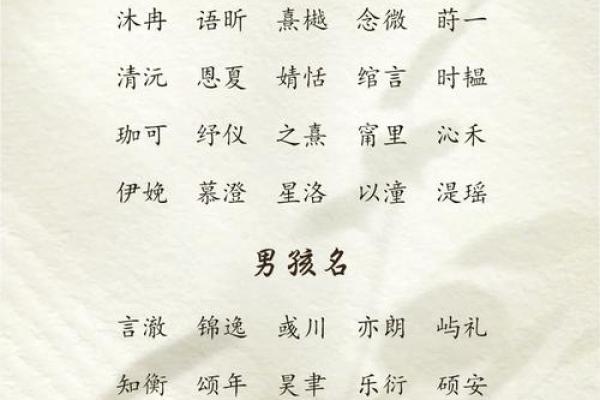 沐冉 语昕 熹樾 念微 莳一
清沅 恩夏 婧恬 绾言 时韫
珈可 纾仪 之熹 甯里 沁禾
伊娩 慕澄 星洛 以潼 湜瑶
男孩名
言澈 锦逸 彧川 亦朗 屿礼
知衡 颂年 昊聿 乐衍 硕安